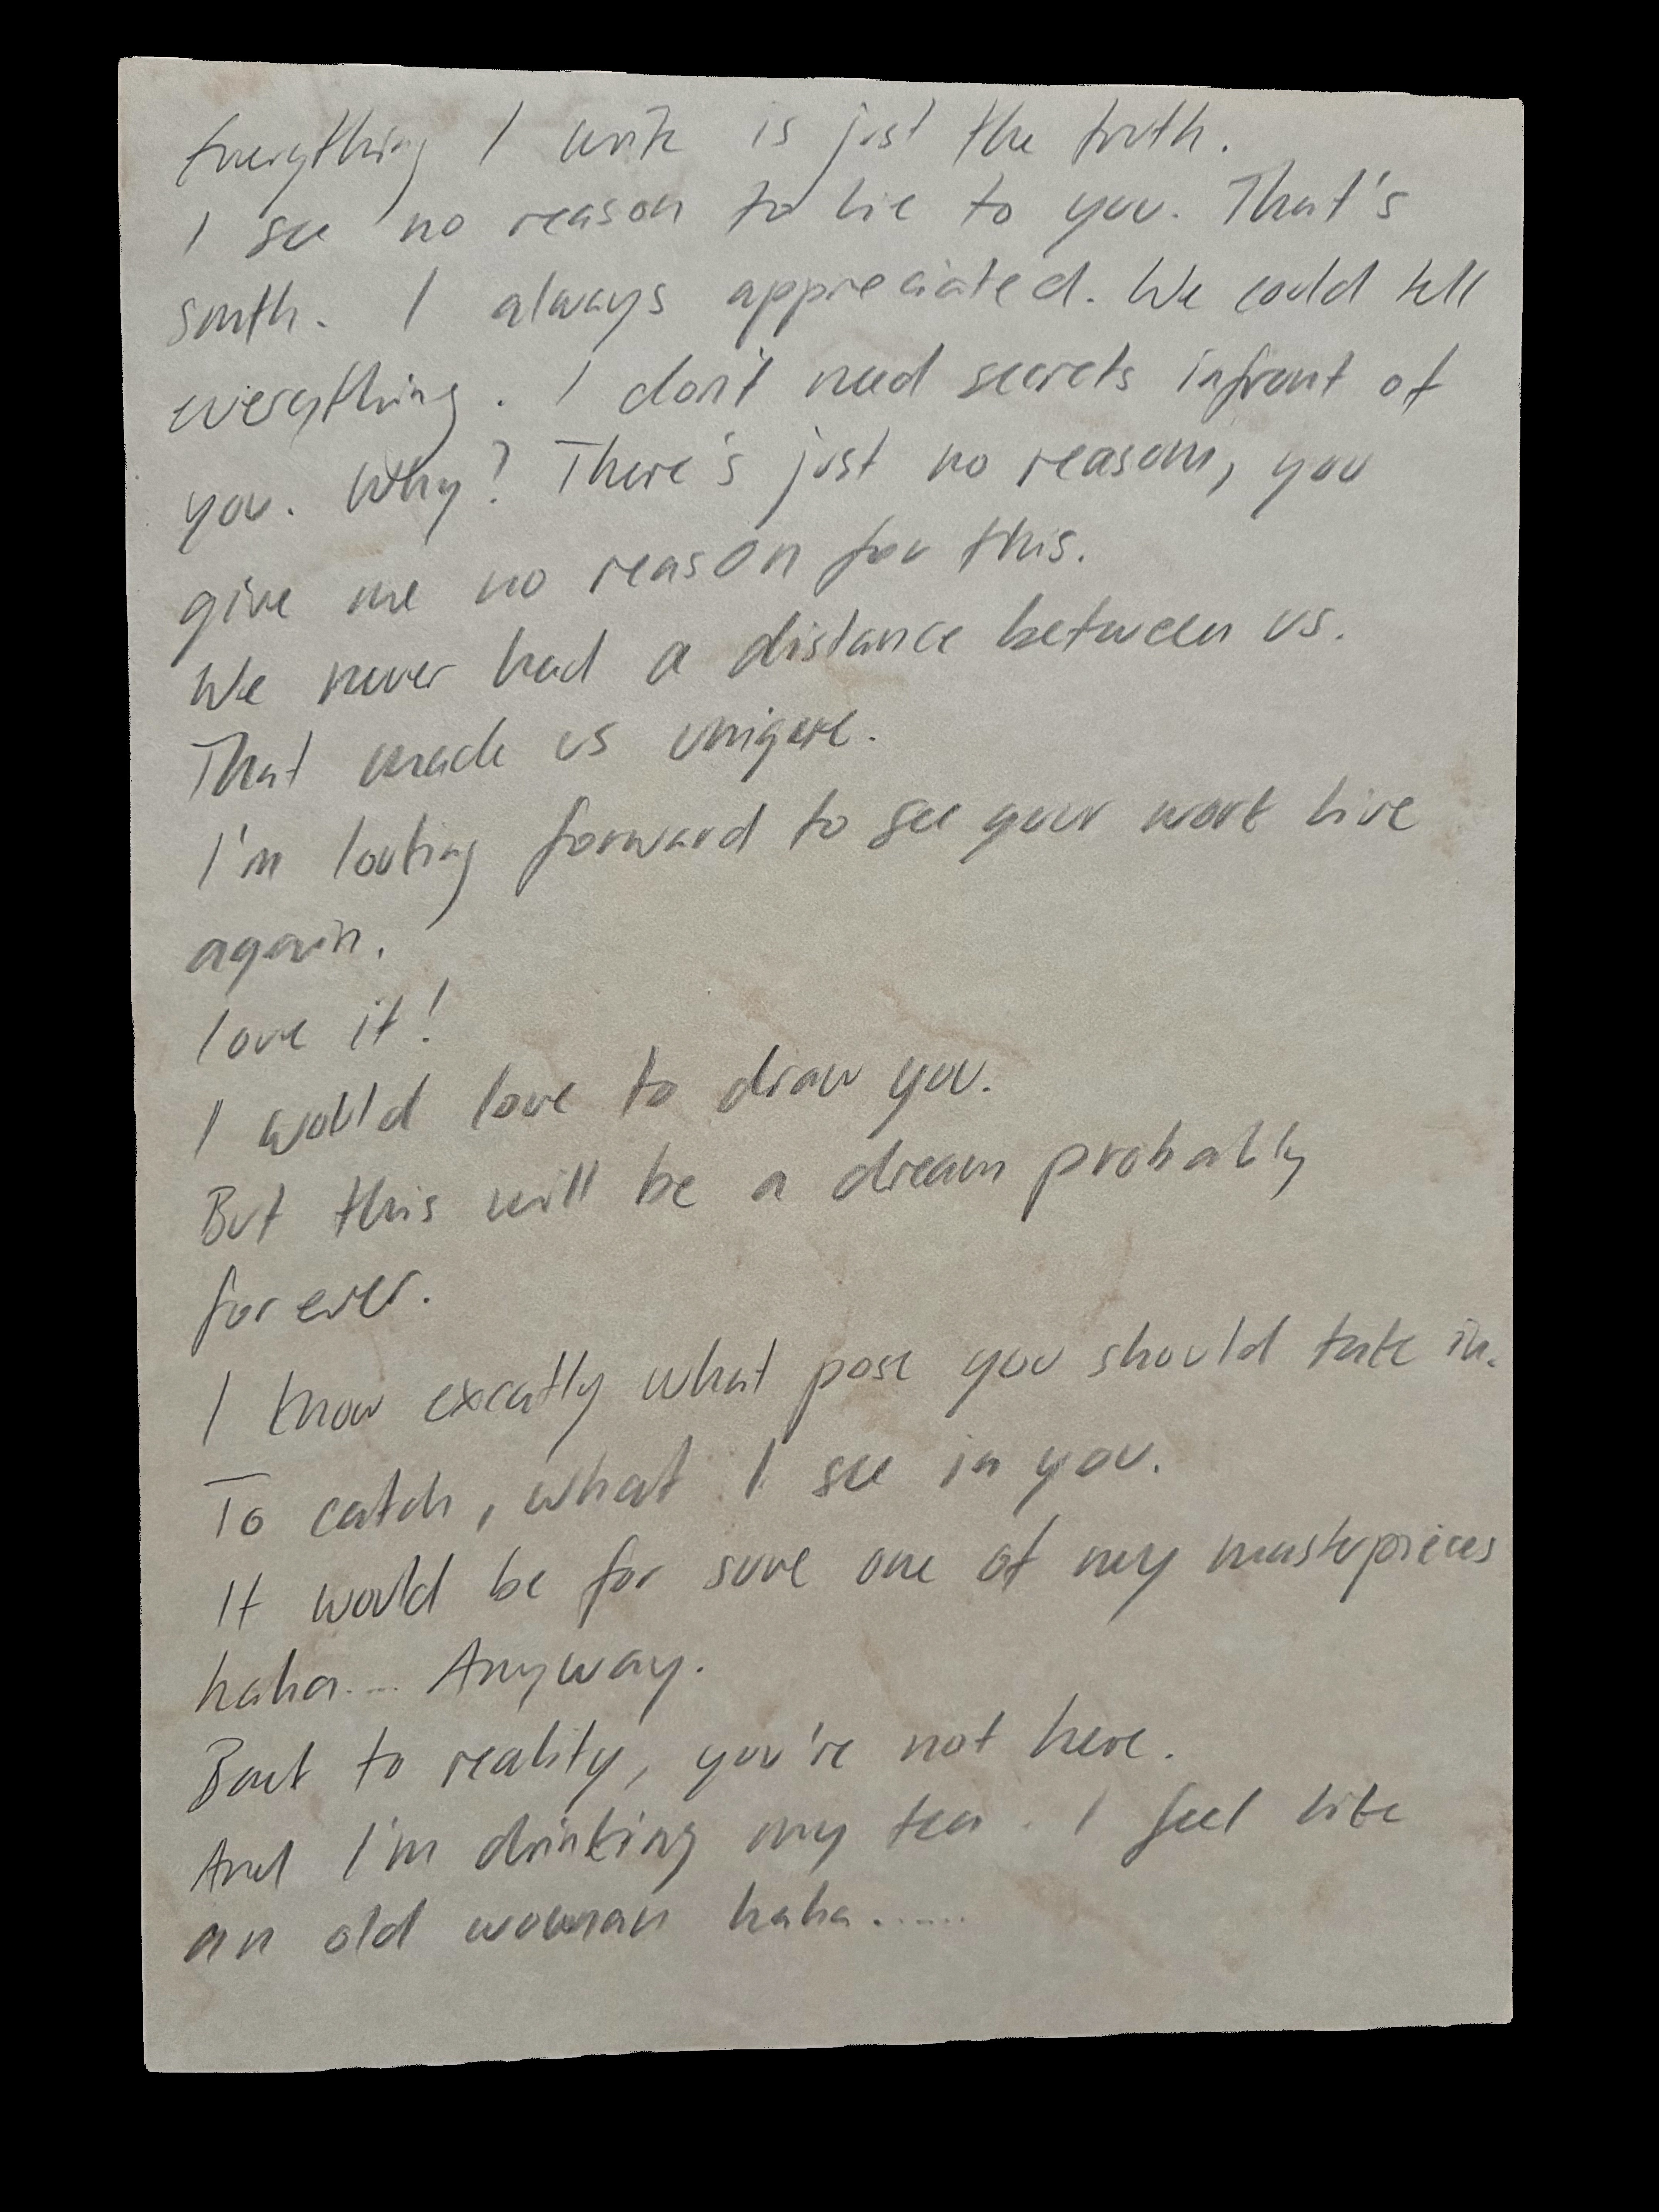 Everything I write is just the truth.
I see no reason to lie to you. That's
smth. I always appreciated. We could tell
everything. I don't need secrets infront of
you. Why? There's just no reasons, you
give me no reason for this.
We never had a distance between us.
That made us unique.
I'm looking forward to see your work live
again.
love it!
I would love to draw you.
But this will be a dream probably
for ever.
I know excatly what pose you should take in.
To catch, what I see in you.
It would be for sure one of my masterpieces
haha.... Anyway.
Back to reality, you're not here.
And I'm drinking my tea. I feel like
an old woman haha......